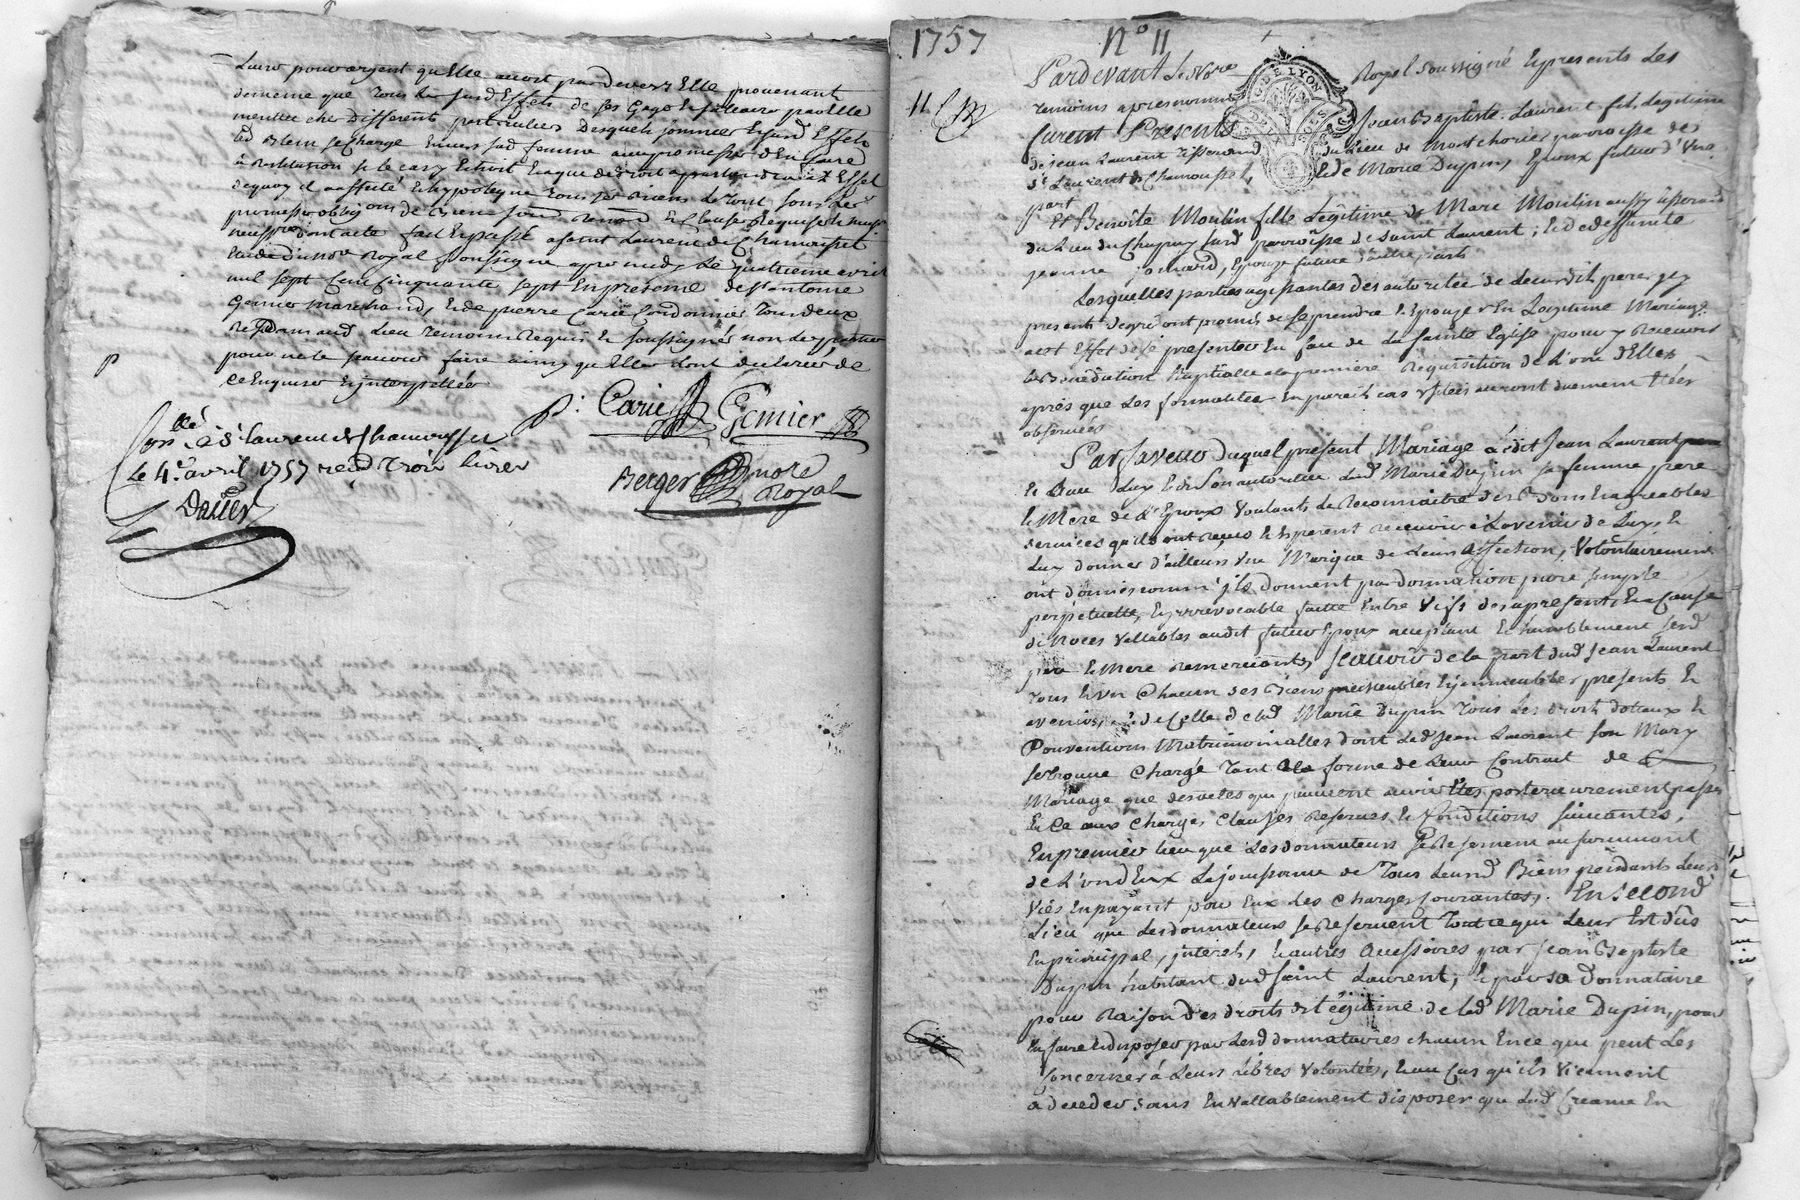 Livres pour argent qu'Elle avoit pardevers Elle provenant
de meme que Tous Les susd Effets de ses Gages Et sallaires par Elle
chez Differents particuliers Desquels sommes Et susd Effets
Led Blein se Charge Envers sad femme avec promesse d'En faire
restitution le cas y Echeoit Et a qui de Droit appartiendra
de quoy il a affecté Et hypotequé Tous ses Biens
promesses obligons de Biens Et Clauses Requises
fait Et passé a saint Laurent de Chamousset
Etude du nore Royal soussigné apres midy Le quatrieme avril
mil sept Cent Cinquante sept En presence de sr antoine
Gemier marchand, Et de pierre Carié Cordonnier Tous deux
dud Lieu temoins Requis Et soussignés non Les parties
pour ne le scavoir faire ainsy qu'Elles L'ont declaré de
ce Enquises Et jnterpellées
P
P. Carié Gemier
Con.lé à St Laurent de Chamousset
Le 4.e avril 1757 recu Trois livres
Dalier
Berger nore
Royal
1757 No 11
Pardevant Le Nore Royal soussigné Et presents Les
GDE LYON
11 C
temoins apres nommés
furent Presents Jean Baptiste Laurent fils Legitime
de Jean Laurent Tisserand du Lieu de Montchorier parroisse de
St Laurent de Chamousset, Et de Marie Dupin, Epoux futur d'Une
part
Et Benoite Moulin fille Legitime de Marc Moulin aussy tisserand
du Lieu du Chapuy susd parroisse de Saint Laurent; Et de deffunte
jeanne jomard, Epouze future d'autre part
Lesquelles parties agissantes des autoritée de Leursdit peres jcy
presents de gré ont promis de se prendre Et Epouzer En Legitime Mariage
a cet Effet de se presenter En face de La Sainte Eglise pour y Recevoir
La Benediction Nuptialle a La premiere Requisition de L'une d'Elles
apres que Les formalitées En pareils cas Usitées auront duement Etées
observées
En faveur duquel present Mariage Ledit Jean Laurent
Et de son autoritée Lad Marie Dupin sa femme, pere
Et Mere de L'Epoux Voulants Le Reconnaitre des Bons Et agreables
services qu'ils ont Reçus Et Esperent recevoir à L'avenir de Luy, Et
Luy donner d'ailleurs Une Marque de Leurs affection, Volontairement
ont donnés comm'jls donnent par donnation pure simple
perpetuelle, Et jrrevocable faitte Entre Vifs des apresent, Et a Cause
de Noces Vallables audit futur Epoux acceptant Et humblement sesd
pere Et Mere Remerciants, Scavoir de la part dud Jean Laurent
Tous Et un Chacun ses Biens meubles Et jmmeubles presents Et
avenirs, Et de Celle de Lad Marie Dupin Tous Les droits dottaux Et
Conventions Matrimonialles dont Led Jean Laurent son Mary
se trouve Chargé Tant a La forme de Leur Contrat de
Mariage que des actes qui peuvent avoir Etés posterieurement passés
Et Ce aux Charges Clauses Reserves Et Conditions suivantes,
En premier Lieu que Les donnateurs se Reservent au survivant
de L'un d'Eux La jouissance de Tous Leursd Biens pendants Leurs
Vies En payant par Eux Les Charges Courantes. En second
Lieu que Les donnateurs se Reservent Tout ce qui Leur Est dûs
En principal, jnterets, Et autres accessoires par Jean Baptiste
Dupin habitant dud Saint Laurent, Et par sa Donnataire
pour Raison des droits de Légitime de Lad Marie Dupin, pour
En faire Et disposer par Lesd donnataires chacun En ce qui peut Les
Concerner à Leurs Libres Volontés, Et au Cas qu'ils Viennent
a deceder sans En vallablement disposer que Lad Creance En